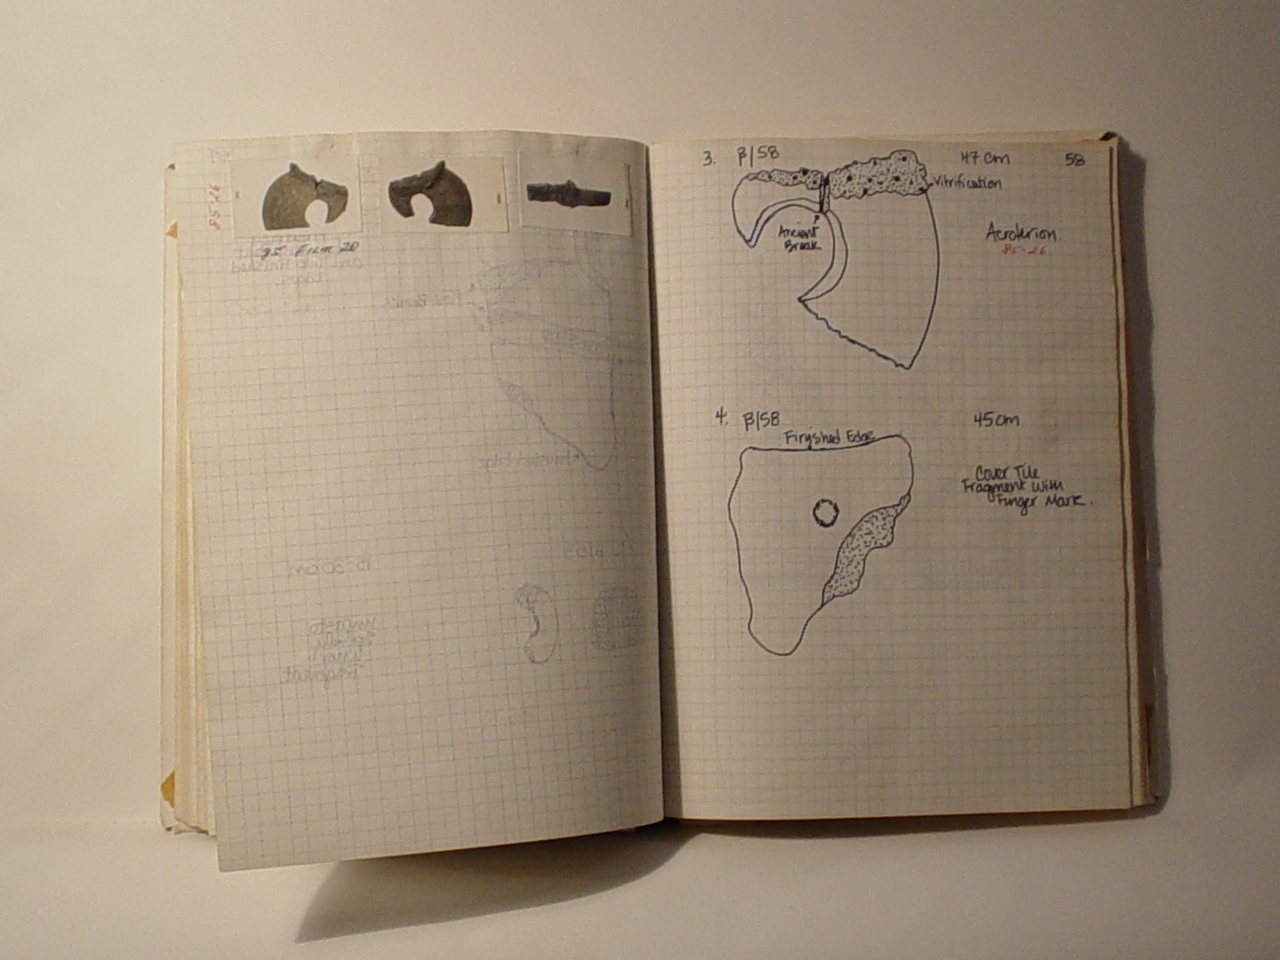 85-26
85 Film 20
3. β/58
47 cm
58
Vitrification
Ancient
Break
Acroterion
85-26
4. β/58
45cm
Finished Edge
Cover Tile
Fragment with
Finger Mark.